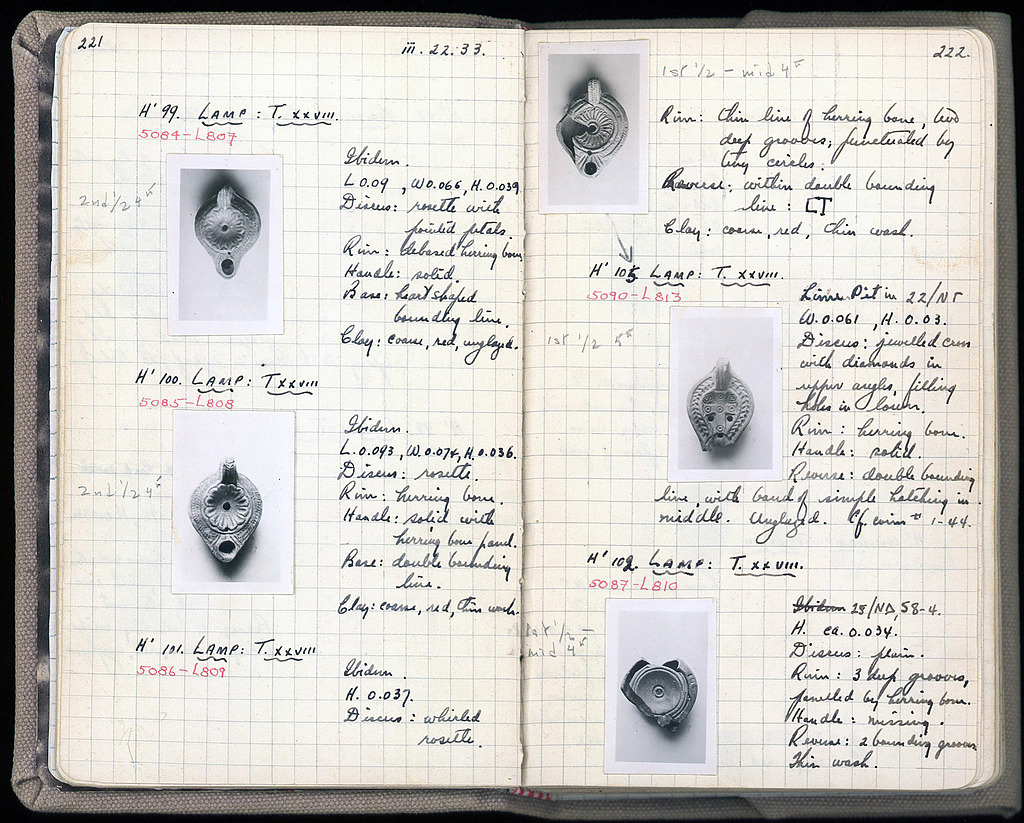 221
iii. 22. 33.
H' 99. LAMP: T. XXVIII.
5084-L807
2nd 1/2 4th
Ibidem.
L 0.09, W 0.066, H. 0.039
Discus: rosette with
pointed petals.
Rim: debased herring bone
Handle: solid.
Base: heart shaped
bounding line.
Clay: coarse, red, unglazed.
H' 100. LAMP: T XXVIII
5085-L808
2nd 1/2 4th
Ibidem.
L. 0.093, W. 0.074, H. 0.036.
Discus: rosette.
Rim: herring bone.
Handle: solid with
herring bone panel.
Base: double bounding
line.
Clay: coarse, red, thin wash.
H' 101. LAMP: T. XXVIII
5086-L809
Ibidem.
H. 0.037.
Discus: whirled
rosette.
222.
1st 1/2 - mid 4th
Rim: thin line of herring bone, two
deep grooves; punctuated by
tiny circles.
Reverse: within double bounding
line:
Clay: coarse, red, thin wash.
H' 105 LAMP: T. XXVIII.
5090-L813
1st 1/2 5th
Lime Pit in 22/ΝΓ
W. 0.061, H. 0.03.
Discus: jewelled cross
with diamonds in
upper angles, filling
holes in lower.
Rim: herring bone.
Handle: solid.
Reverse: double bounding
line with band of simple hatching in
middle. Unglazed. Cf. coins # 1-44.
H' 102. LAMP: T. XXVIII.
5087-L810
1st 1/2 -
mid 4th
Ibidem 25/ΝΔ, 58-4.
H. ca. 0.034.
Discus: plain.
Rim: 3 deep grooves,
panelled by herring bone.
Handle: missing.
Reverse: 2 bounding grooves
Thin wash.